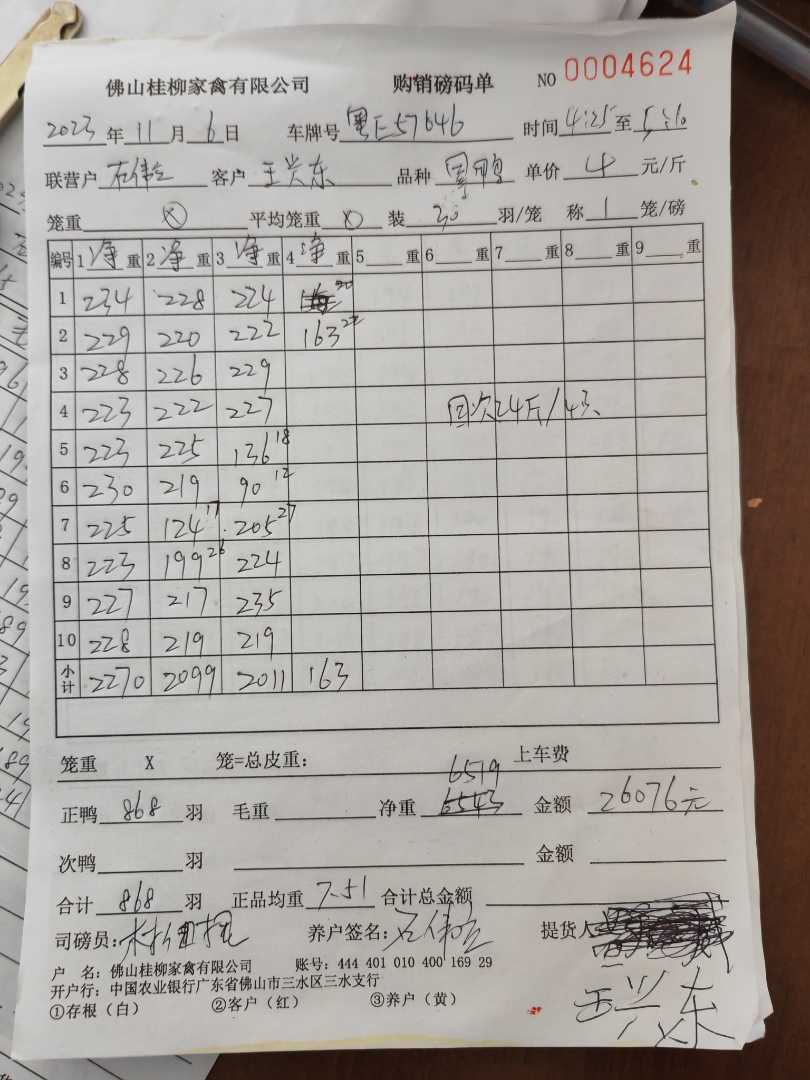 佛山桂柳家禽有限公司 购销磅码单 NO 0004624
2023年11月6日 车牌号 粤E57646 时间 4:25至5:10
联营户 石伟立 客户 王兴东 品种 单价 4 元/斤
笼重 ⊗ 平均笼重 ⊗ 装 30 羽/笼 称 1 笼/磅
编号 1净重 2净重 3净重 4净重 5重 6重 7重 8重 9重
1 234 228 224 20
2 229 220 222 163 22
3 228 226 229
4 223 222 227 回次24斤/4只
5 223 225 136 18
6 230 219 90 12
7 225 124 17 205 27
8 223 199 26 224
9 227 217 235
10 228 219 219
小计 2270 2099 2011 163
笼重 X 笼=总皮重: 上车费
6519
正鸭 868 羽 毛重 净重 6543 金额 26076元
次鸭 羽 金额
合计 868 羽 正品均重 7.51 合计总金额
司磅员: 养户签名: 石伟立 提货人
户 名: 佛山桂柳家禽有限公司 账号: 444 401 010 400 169 29
开户行: 中国农业银行广东省佛山市三水区三水支行
①存根（白） ②客户（红） ③养户（黄）
王兴东